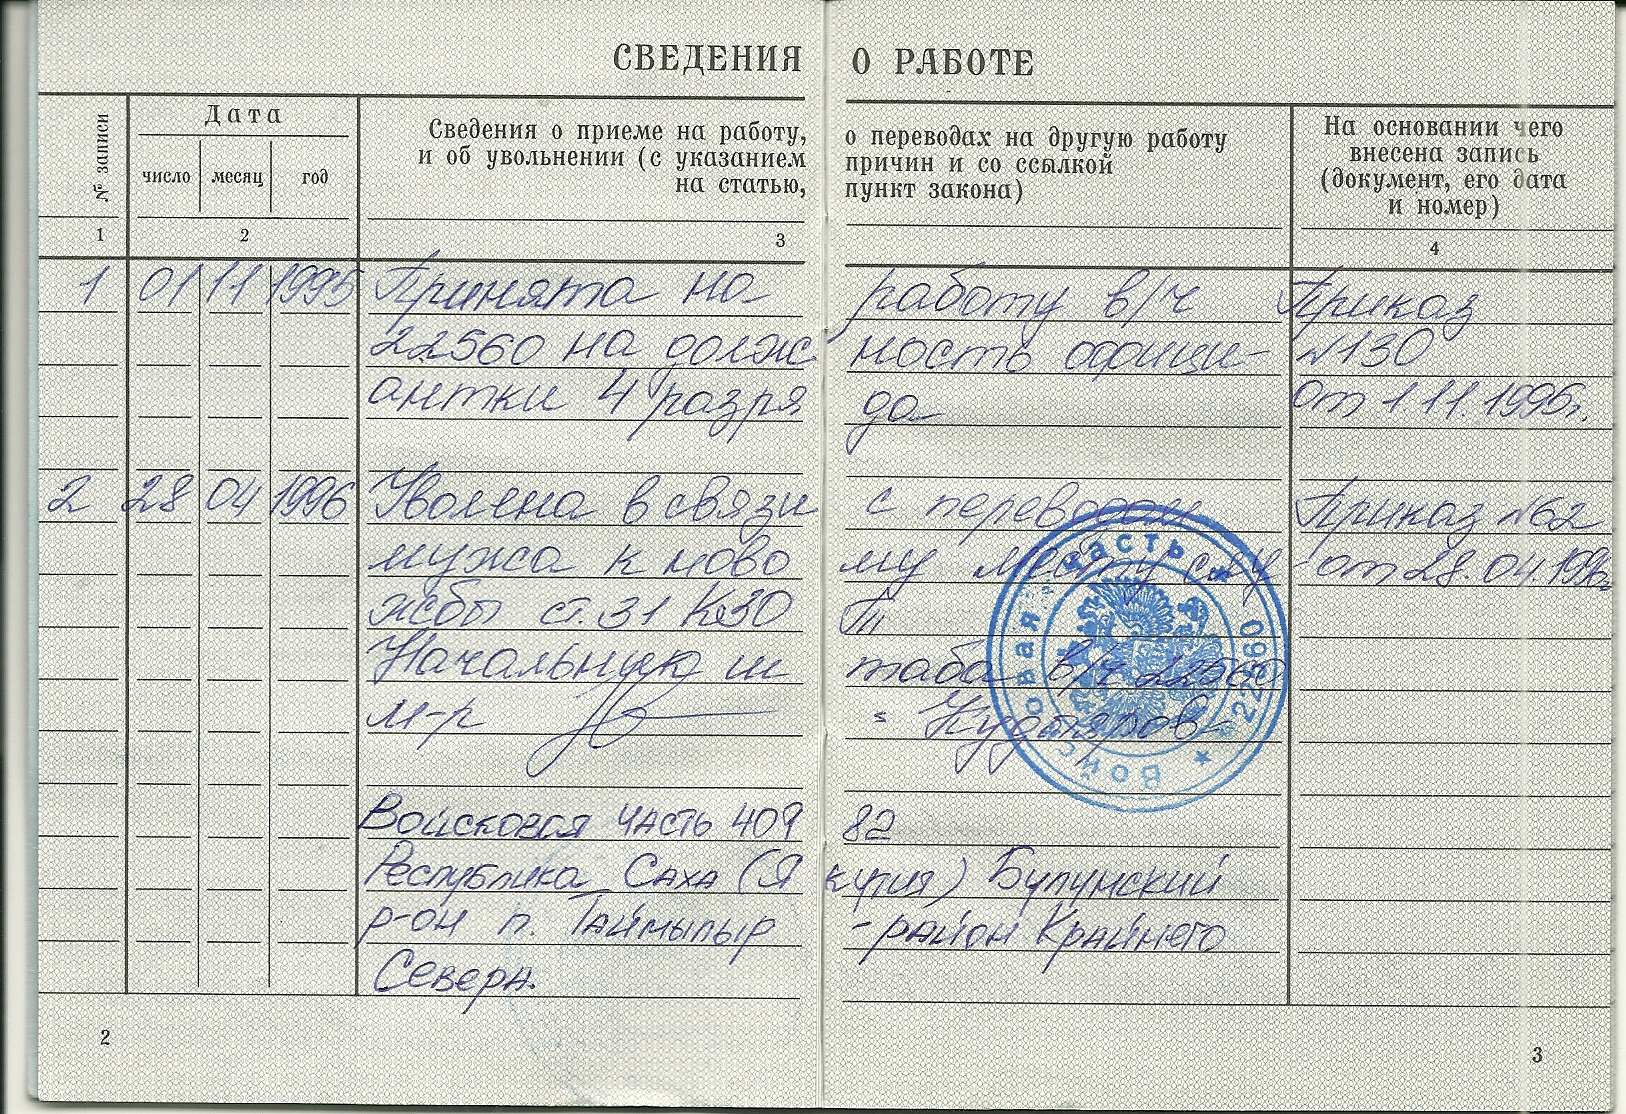 СВЕДЕНИЯ О РАБОТЕ
№ записи
Дата
число месяц год
Сведения о приеме на работу, о переводах на другую работу
и об увольнении (с указанием причин и со ссылкой
на статью, пункт закона)
На основании чего
внесена запись
(документ, его дата
и номер)
1 2 3 4
1 01 11 1995 Принята на работу в/ч Приказ
22560 на должность официн- №130
антки 4 разряда от 1.11.1995г.
2 28 04 1996 Уволена в связи с переводом Приказ №62
мужа к новому месту слу от 28.04.1996г.
жбы ст.31 КЗО Т
Начальник штаба в/ч 22560
м-р Кудаяров
Войсковая часть 22560
Войсковая часть 40982
Республика Саха (Якутия) Булунский
р-он п. Таймылыр - район Крайнего
Севера.
2
3